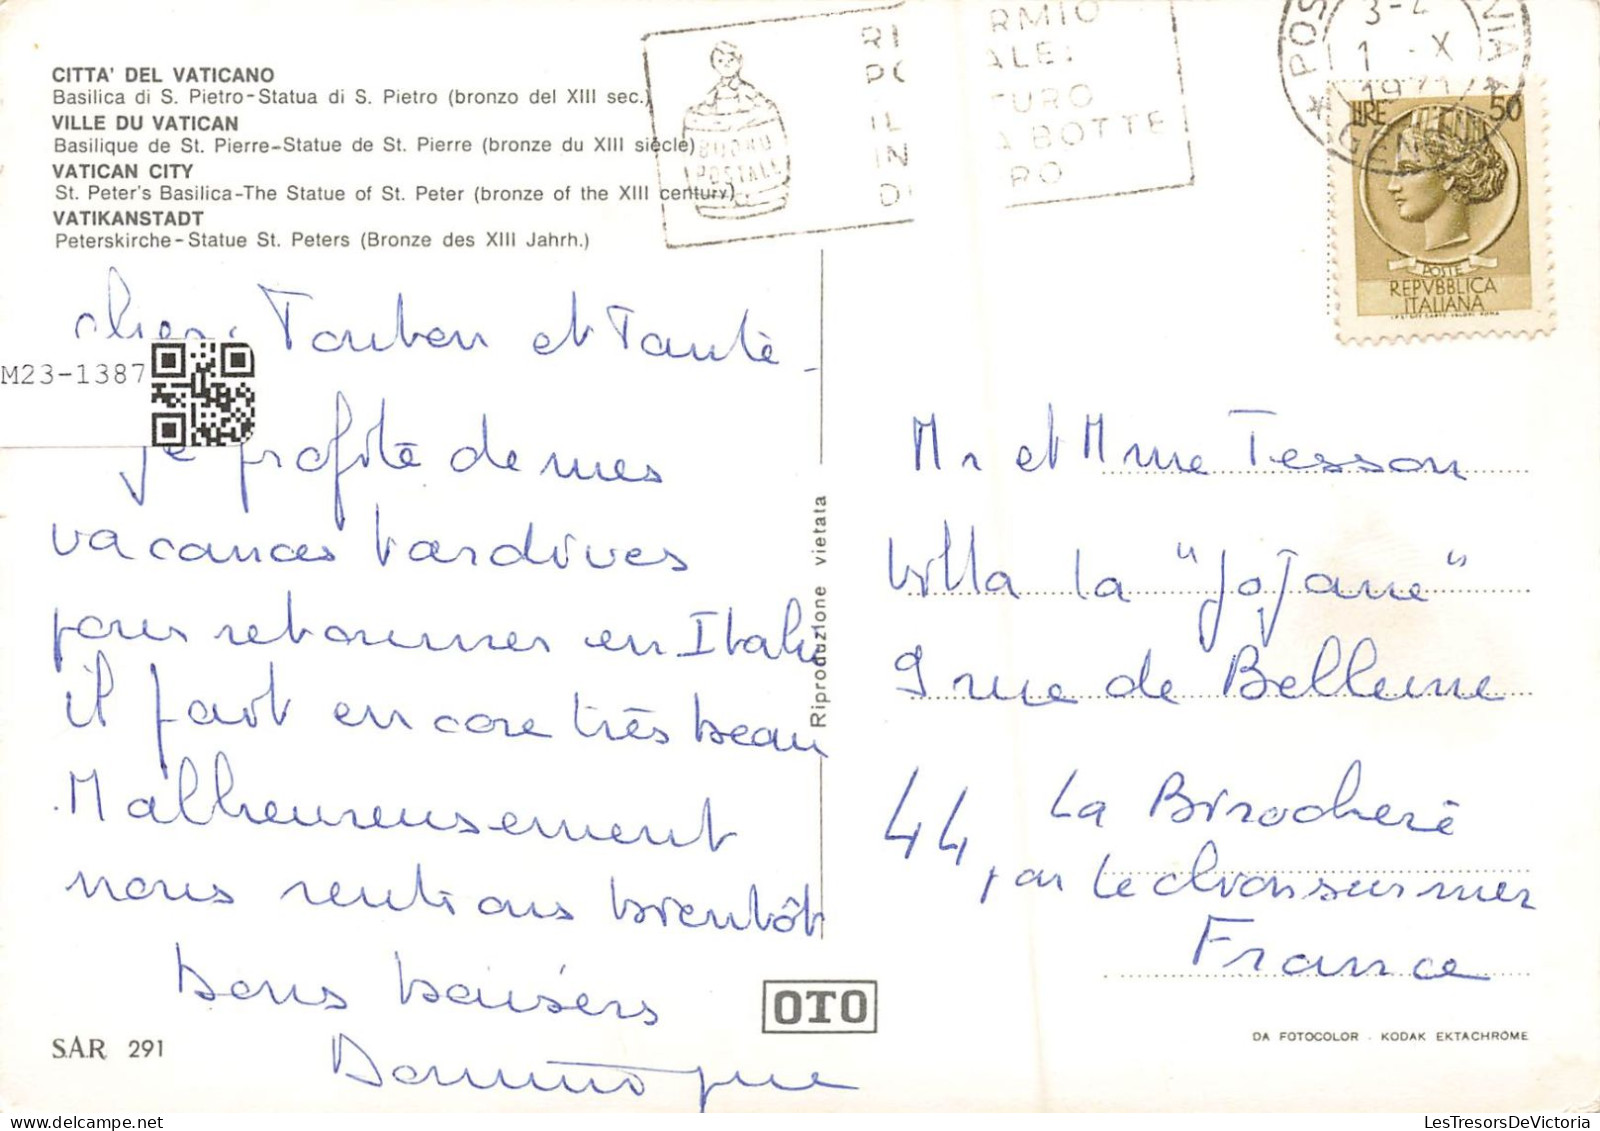 CITTA' DEL VATICANO
Basilica di S. Pietro-Statua di S. Pietro (bronzo del XIII sec.)
VILLE DU VATICAN
Basilique de St. Pierre-Statue de St. Pierre (bronze du XIII siècle)
VATICAN CITY
St. Peter's Basilica-The Statue of St. Peter (bronze of the XIII century)
VATIKANSTADT
Peterskirche-Statue St. Peters (Bronze des XIII Jahrh.)
BUONO
POSTALE
RI RMIO
PO ALE:
IL TURO
IN A BOTTE
D RO
1 X
1971
GEN
LIRE 50
POSTE
REPVBBLICA
ITALIANA
M23-1387
chers Tonton et Tante
je profite de mes
vacances tardives
pour retourner en Italie
il fait encore très beau
Malheureusement
nous rentrons bientôt
bons baisers
Dominique
Riproduzione vietata
Mr et Mme Tesson
Villa la "JoJane"
9 rue de Bellevue
La Birochere
44, par Le clion sur mer
France
S.A.R 291
OTO
DA FOTOCOLOR - KODAK EKTACHROME
LesTresorsDeVictoria.com